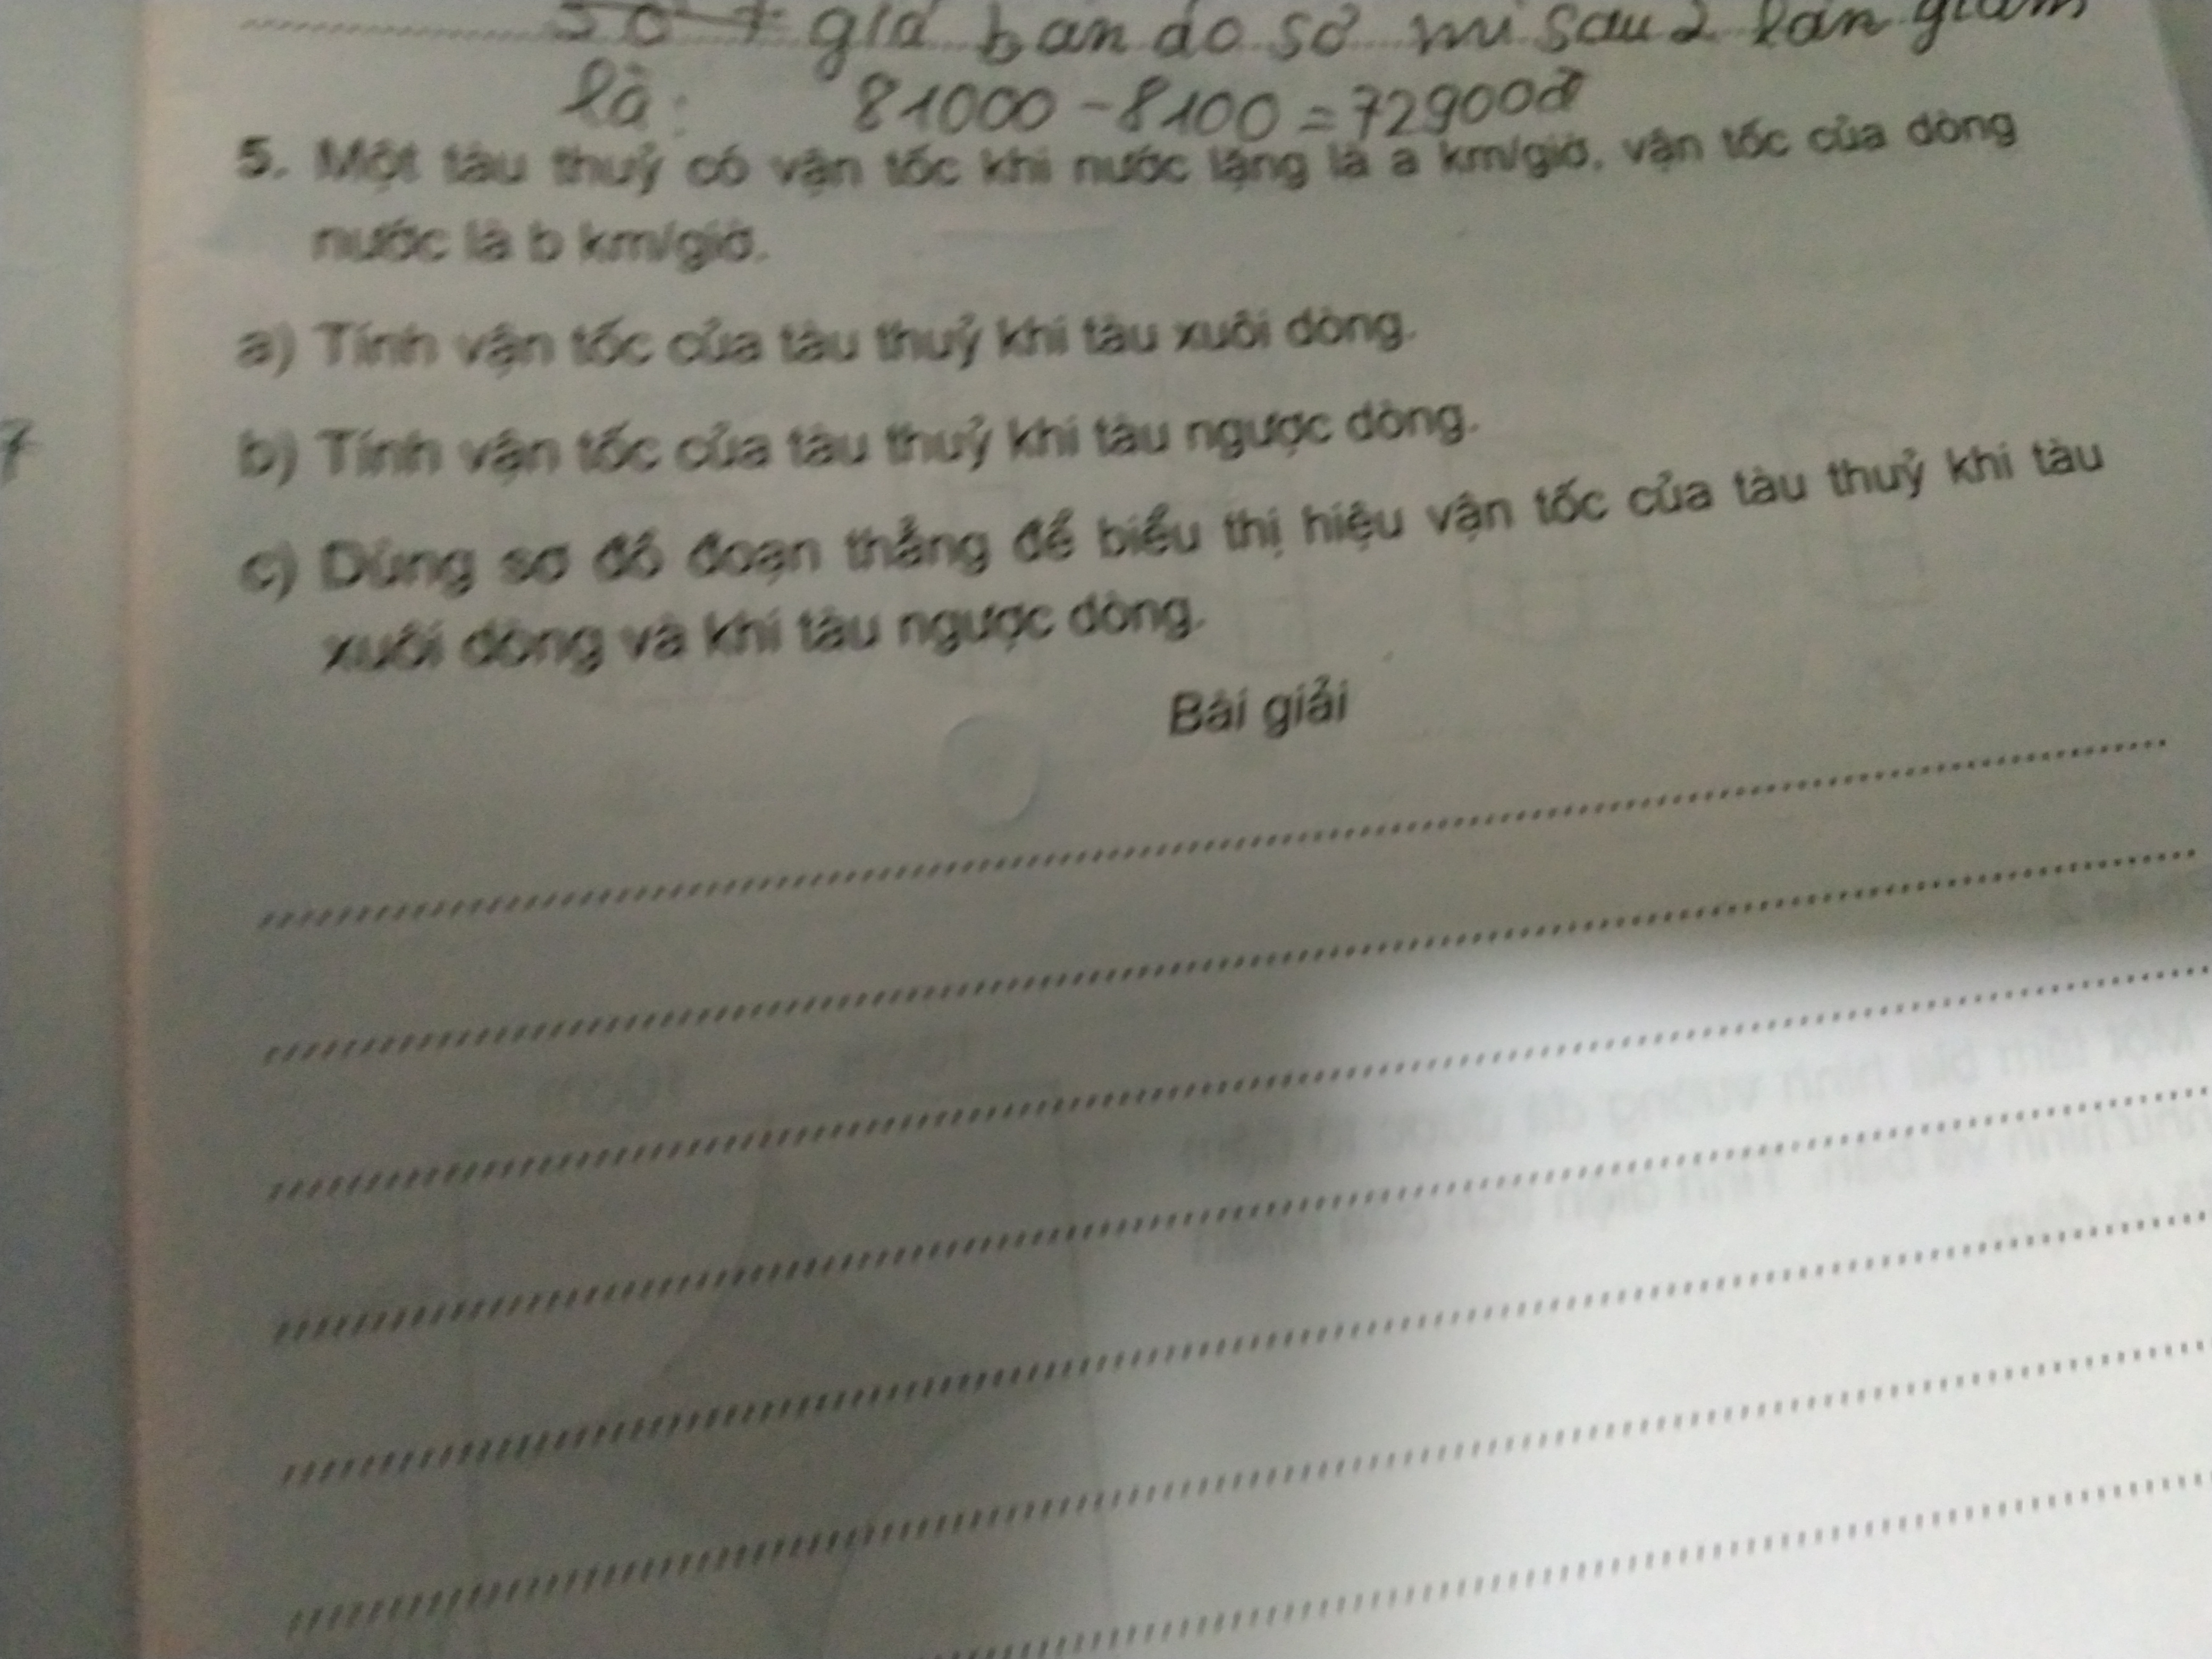 giá bán áo sơ mi sau 2 lần giảm
là: 81000 - 8100 = 72900đ
5. Một tàu thuỷ có vận tốc khi nước lặng là a km/giờ, vận tốc của dòng
nước là b km/giờ.
a) Tính vận tốc của tàu thuỷ khi tàu xuôi dòng.
7
b) Tính vận tốc của tàu thuỷ khi tàu ngược dòng.
c) Dùng sơ đồ đoạn thẳng để biểu thị hiệu vận tốc của tàu thuỷ khi tàu
xuôi dòng và khi tàu ngược dòng.
Bài giải